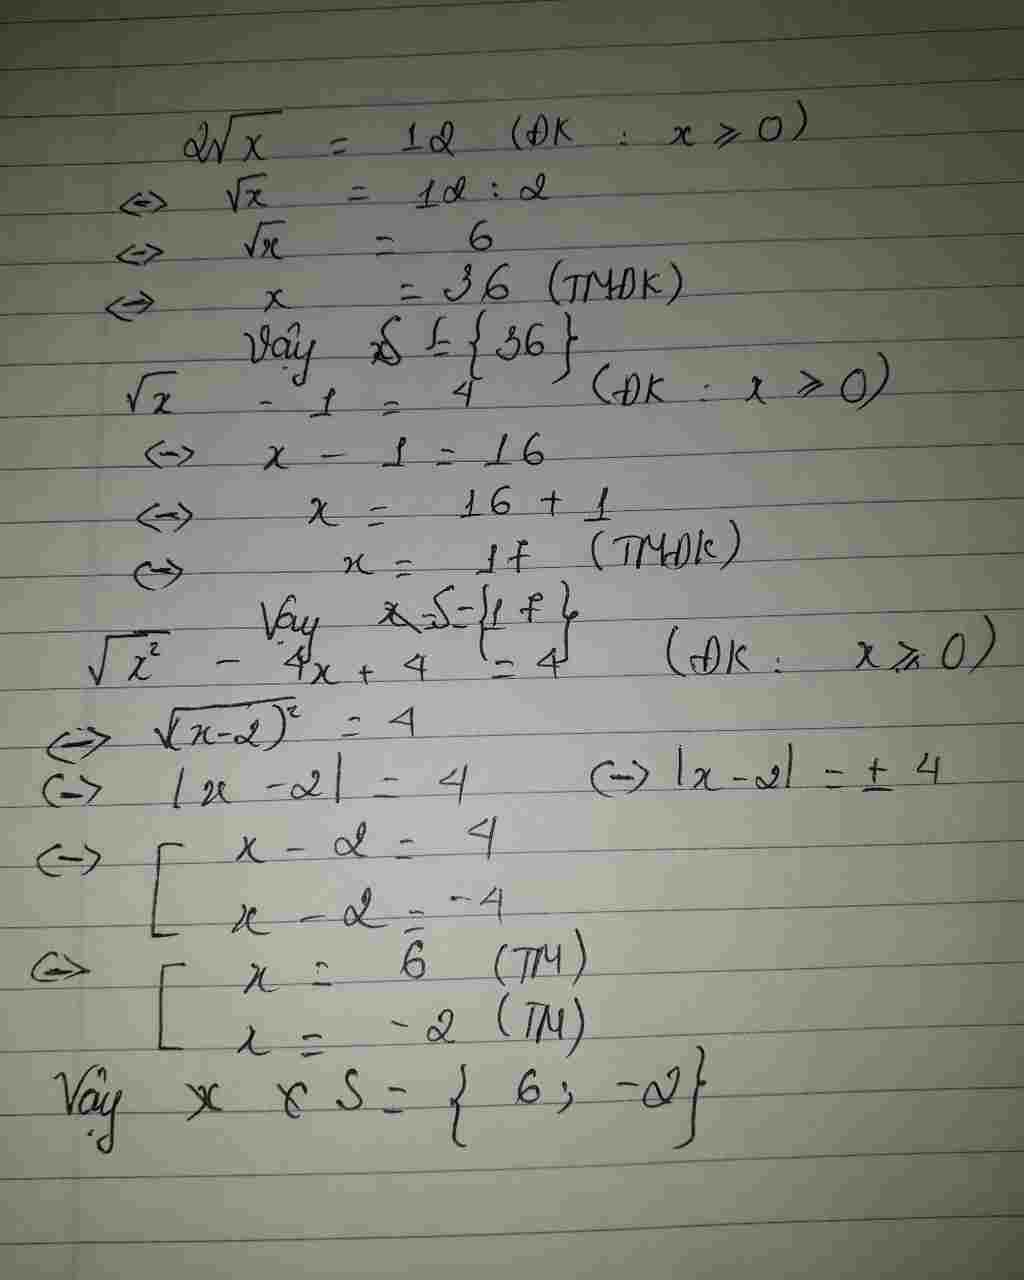 2√x = 12 (ĐK : x ≥ 0)
<=> √x = 12 : 2
<=> √x = 6
<=> x = 36 (TMĐK)
Vậy S = {36}
√x - 1 = 4 (ĐK : x ≥ 0)
<=> x - 1 = 16
<=> x = 16 + 1
<=> x = 17 (TMĐK)
Vậy S = {17}
√x² - 4x + 4 = 4 (ĐK : x ≥ 0)
<=> √(x-2)² = 4
<=> |x - 2| = 4 <=> |x - 2| = ± 4
<=> [ x - 2 = 4
x - 2 = -4
<=> [ x = 6 (TM)
x = -2 (TM)
Vậy x S = { 6 ; -2}